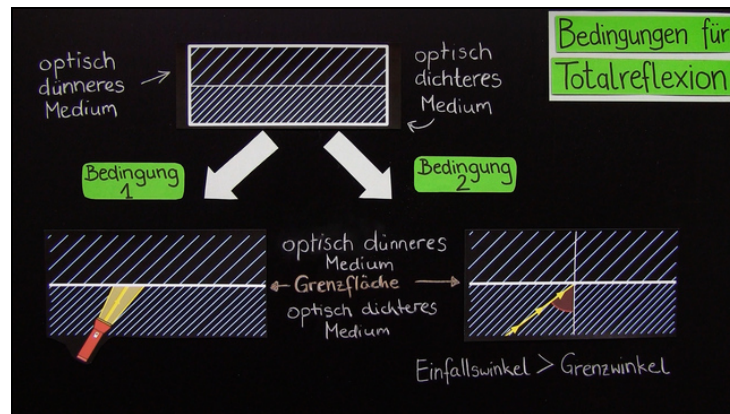 Bedingungen für
Totalreflexion
optisch
dünneres
Medium
optisch
dichteres
Medium
Bedingung
1
Bedingung
2
optisch dünneres
Medium
Grenzfläche
optisch dichteres
Medium
Einfallswinkel > Grenzwinkel